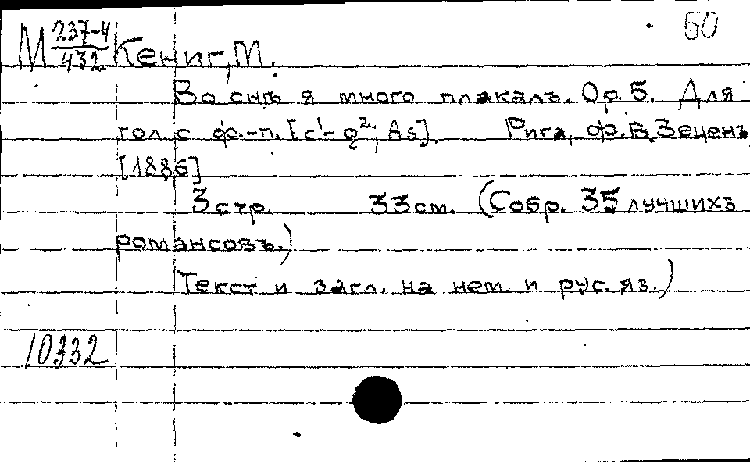 60
М 237-4/432 Кениг, М.
Во снѣ я много плакалъ. Ор. 5. Для
гол. с ф.-п. [c¹-g², As]. Рига, ф. В. Зеценъ
[1886]
3 стр. 33 см. (Собр. 35 лучшихъ
романсовъ.)
Текст и загл. на нем. и рус. яз.)
10332